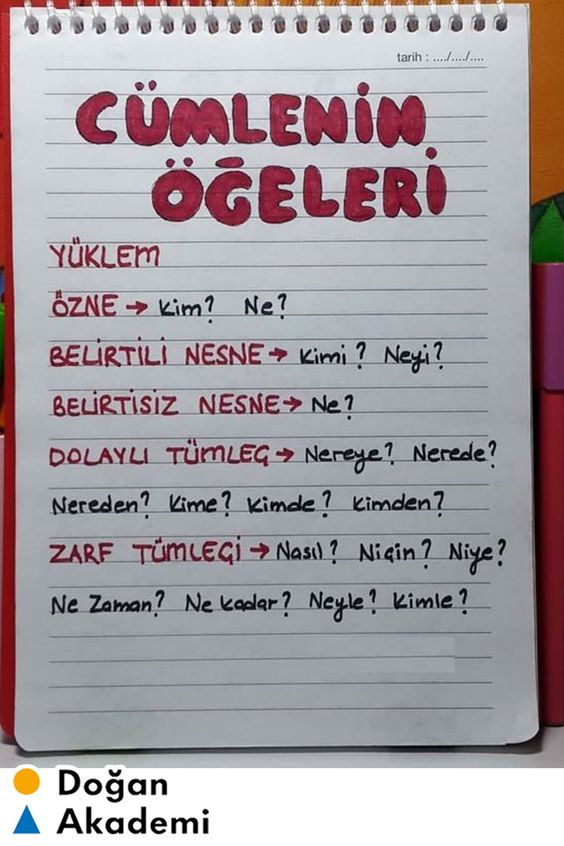 tarih : ..../..../....
CÜMLENİN
ÖĞELERİ
YÜKLEM
ÖZNE → Kim? Ne?
BELİRTİLİ NESNE → Kimi? Neyi?
BELİRTİSİZ NESNE → Ne?
DOLAYLI TÜMLEÇ → Nereye? Nerede?
Nereden? Kime? Kimde? Kimden?
ZARF TÜMLECİ → Nasıl? Niçin? Niye?
Ne Zaman? Ne kadar? Neyle? Kimle?
Doğan
Akademi